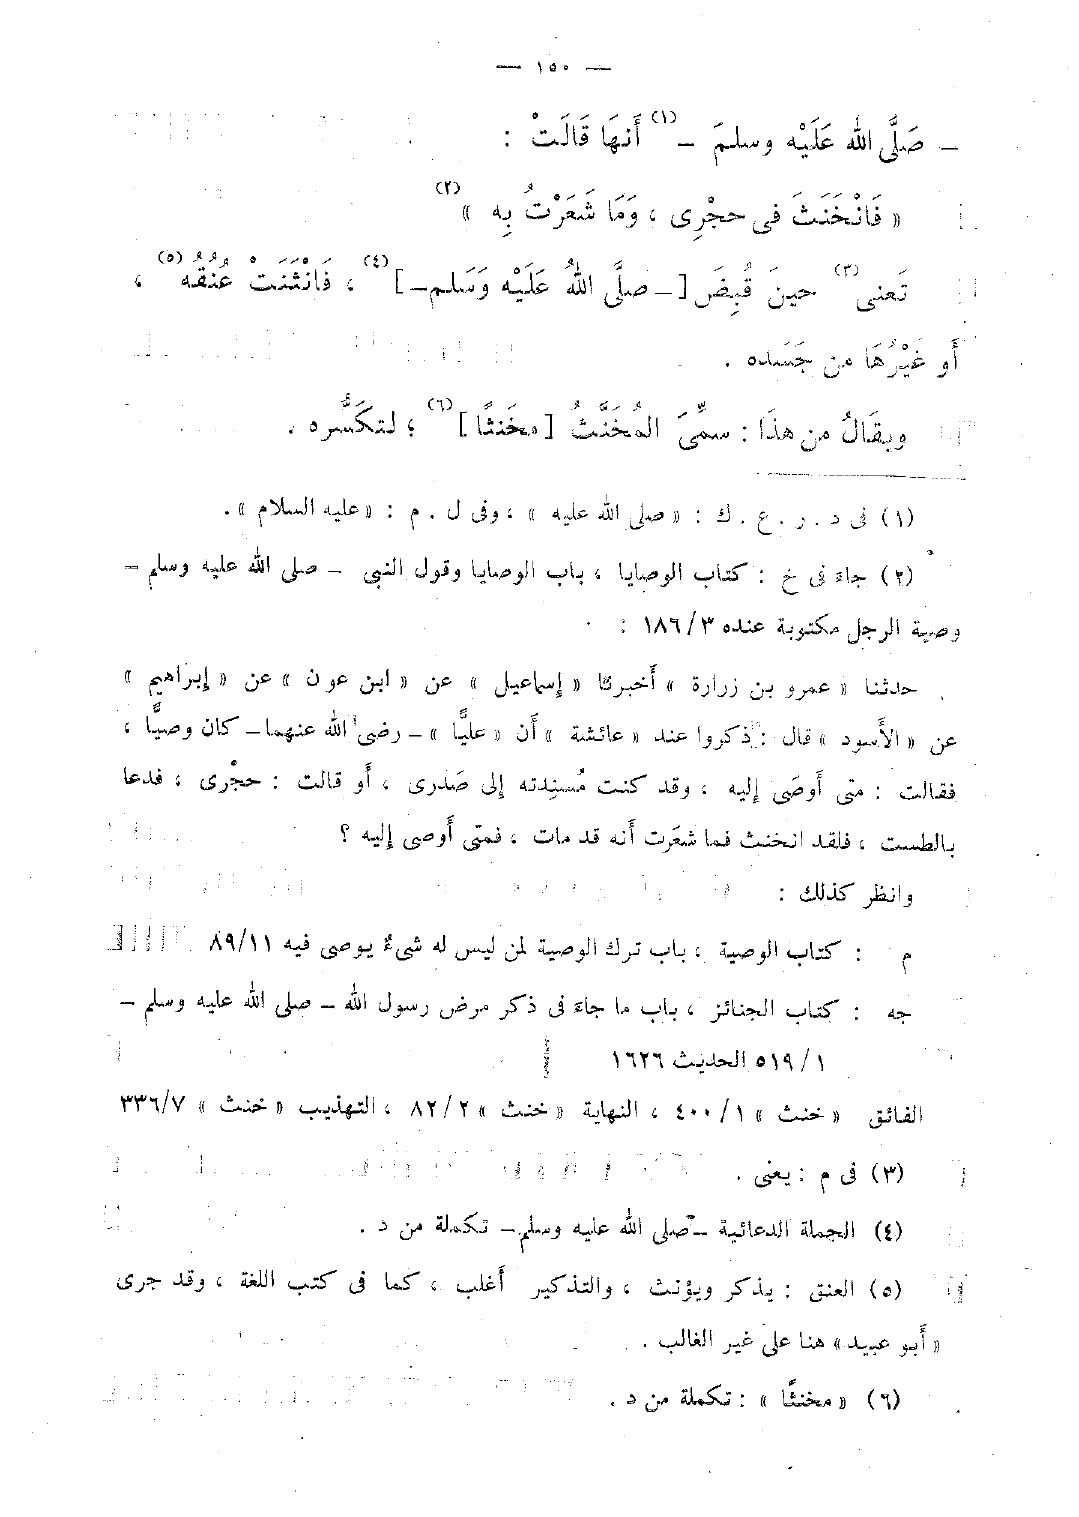 — ١٥٠ —
– صَلَّى اللهُ عَلَيْه وسلمَ –(١) أَنهَا قَالَتْ :
« فَانْخَنَثَ فى حجْرِى ، وَمَا شَعَرْتُ بِه »(٢)
تَعنى(٣) حينَ قُبِضَ [ – صلَّى اللهُ عَلَيْه وَسَلم – ](٤) ، فَانْثنَتْ عُنقُه(٥) ،
أَو غَيْرُهَا من جَسَده .
ويقَالُ من هذَا : سمِّىَ المُخَنَّثُ [ مخَنثًا ](٦) ؛ لتكَسُّره .
(١) فى د . ر . ع . ك : « صلى الله عليه » ، وفى ل . م : « عليه السلام » .
(٢) جاءَ فى خ : كتاب الوصايا ، باب الوصايا وقول النبى – صلى الله عليه وسلم –
وصية الرجل مكتوبة عنده ١٨٦/٣ :
حدثنا « عمرو بن زرارة » أَخبرنا « إسماعيل » عن « ابن عون » عن « إبراهيم »
عن « الأَسود » قال : ذكروا عند « عائشة » أَن « عليًّا » – رضى الله عنهما – كان وصيًّا ،
فقالت : متى أَوصَى إليه ، وقد كنت مُسنِدته إلى صَدرى ، أَو قالت : حجْرى ، فدعا
بالطست ، فلقد انخنث فما شعَرت أَنه قد مات ، فمتى أَوصى إليه ؟
وانظر كذلك :
م : كتاب الوصية ، باب ترك الوصية لمن ليس له شىءٌ يوصى فيه ٨٩/١١
جه : كتاب الجنائز ، باب ما جاءَ فى ذكر مرض رسول الله – صلى الله عليه وسلم –
٥١٩/١ الحديث ١٦٢٦
الفائق « خنث » ٤٠٠/١ ، النهاية « خنث » ٨٢/٢ ، التهذيب « خنث » ٣٣٦/٧
(٣) فى م : يعنى .
(٤) الجملة الدعائية – صلى الله عليه وسلم – تكملة من د .
(٥) العنق : يذكر ويؤنث ، والتذكير أَغلب ، كما فى كتب اللغة ، وقد جرى
« أَبو عبيد » هنا على غير الغالب .
(٦) « مخنثًا » : تكملة من د .